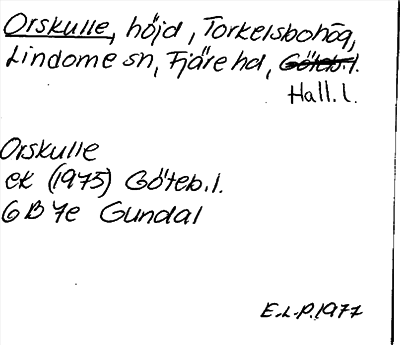 Orskulle, höjd, Torkelsbohög,
Lindome sn, Fjäre hd, Göteb. l.
Hall. l.
Orskulle
ek (1975) Göteb. l.
6 B 7e Gundal
E.L.P. 1977